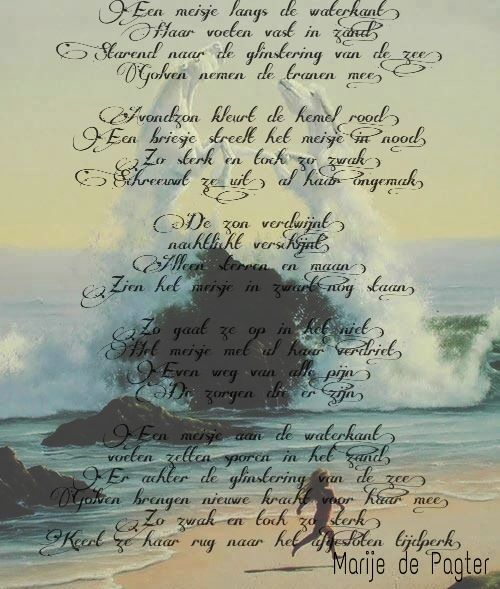 Een meisje langs de waterkant
Haar voeten vast in zand
Starend naar de glinstering van de zee
Golven nemen de tranen mee
Avondzon kleurt de hemel rood
Een briesje streelt het meisje in nood
Zo sterk en toch zo zwak
Schreeuwt ze uit al haar ongemak
De zon verdwijnt
nachtlicht verschijnt
Alleen sterren en maan
Zien het meisje in zwart nog staan
Zo gaat ze op in het niet
Het meisje met al haar verdriet
Even weg van alle pijn
De zorgen die er zijn
Een meisje aan de waterkant
voeten zetten sporen in het zand
Er achter de glinstering van de zee
Golven brengen nieuwe kracht voor haar mee
Zo zwak en toch zo sterk
Keert ze haar rug naar het afgesloten tijdperk
Marije de Pagter